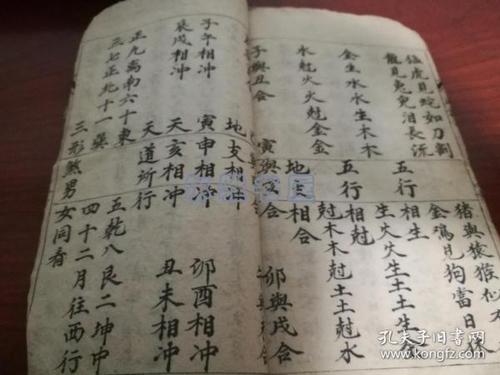 猛虎見蛇如刀割 猪與猿猴似
龍見兔兔泪長流 金鳮見狗當日
五行相生
金生水水生木木生火火生土土生金
五行相尅
水尅火火尅金金尅木木尅土土尅水
地支相合
子與丑合 寅與亥合 卯與戌合
地支相冲
子午相冲 寅申相冲 卯酉相冲
辰戌相冲 天亥相冲 丑未相冲
天道所行
正九鳥南六十東 五乾八艮二坤中
三七正北十一巽 四十二月往西行
三形煞男女同看
孔夫子旧书网
www.kongfz.com